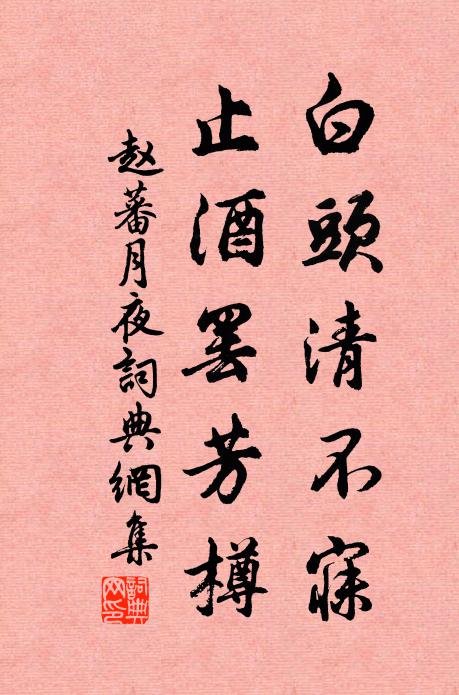 白頭清不寐
止酒罷芳樽
赵蕃月夜詞典網集
詞典網印